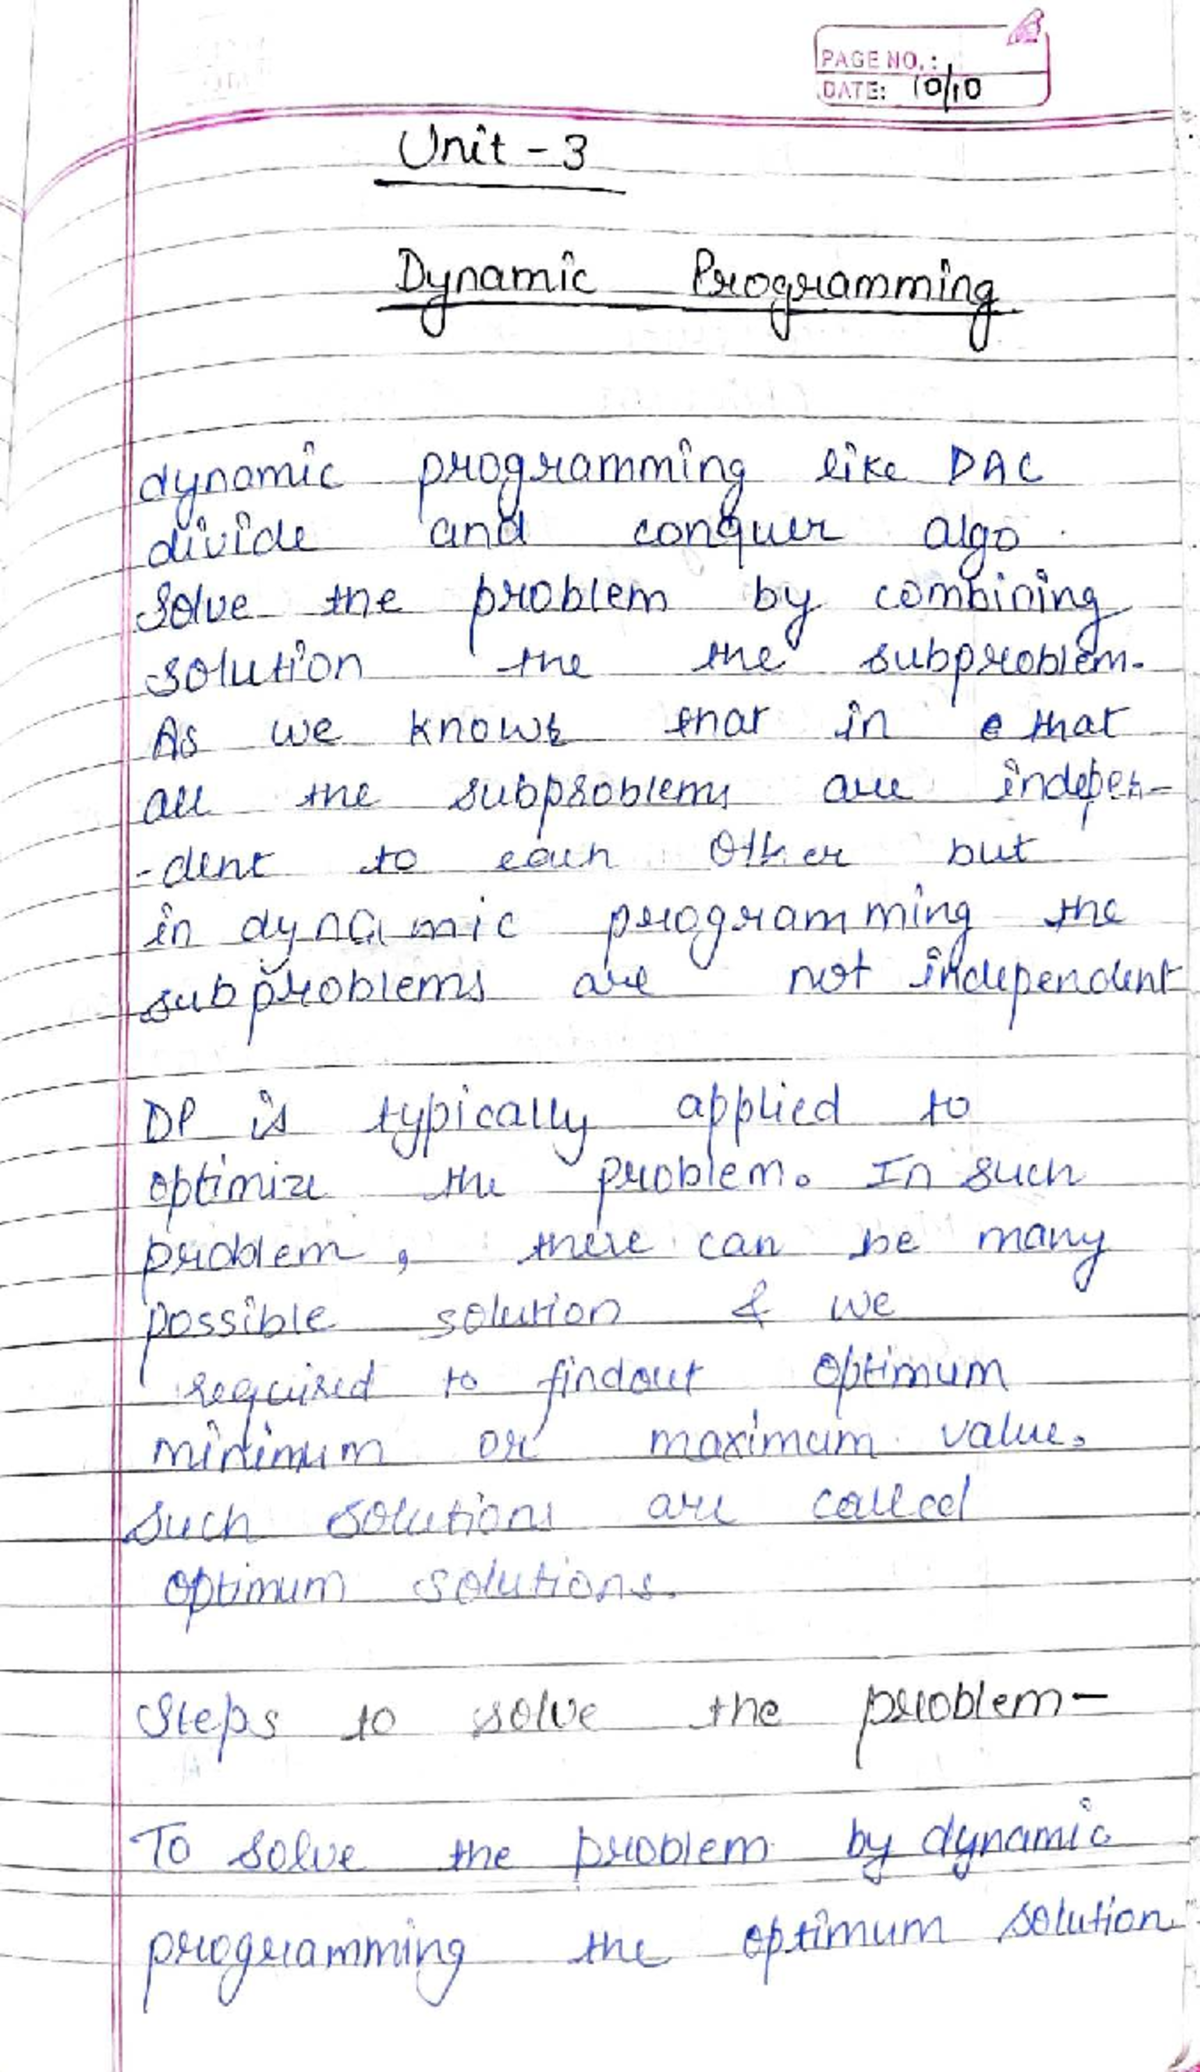 PAGE NO.:
DATE: 10/10
Unit - 3
Dynamic Programming
dynamic programming like DAC
divide and conquer algo.
solve the problem by combining
solution the the subproblem.
As we knows that in e that
all the subproblems are indepen-
-dent to each other but
in dynamic programming the
subproblems are not independent
DP is typically applied to
optimize the problem. In such
problem, there can be many
possible solution & we
required to findout optimum
minimum or maximum value.
Such solutions are called
optimum solutions.
Steps to solve the problem-
To solve the problem by dynamic
programming the optimum solution